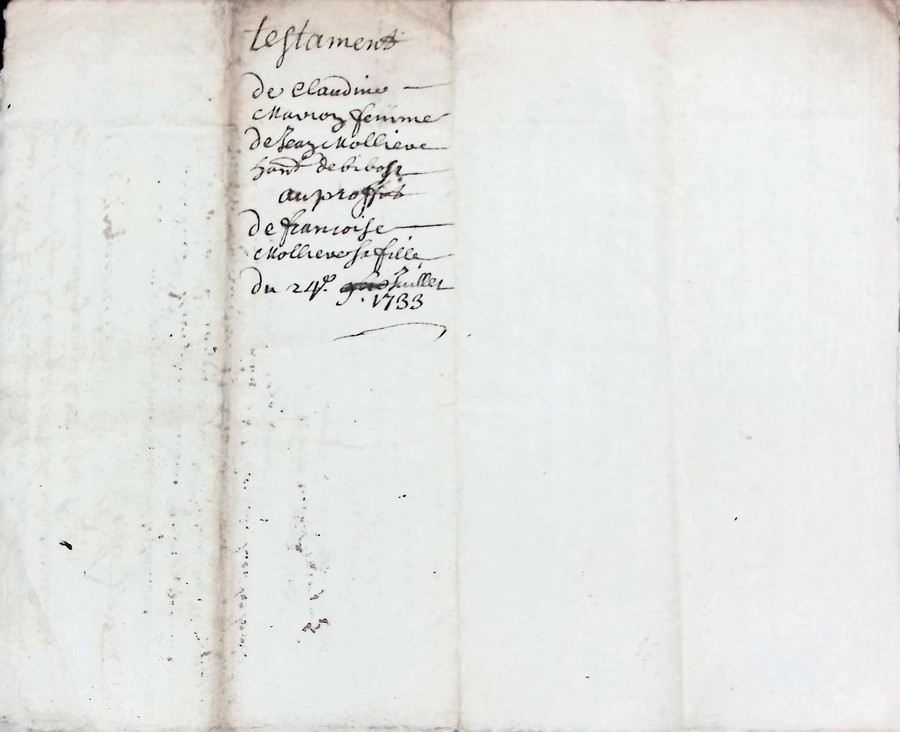 testament
de Claudine
Mavron femme
de Jean Mollieve
hant de bibost
au proffit
de francoise
Mollieve sa fille
du 24e. Juillet
1733